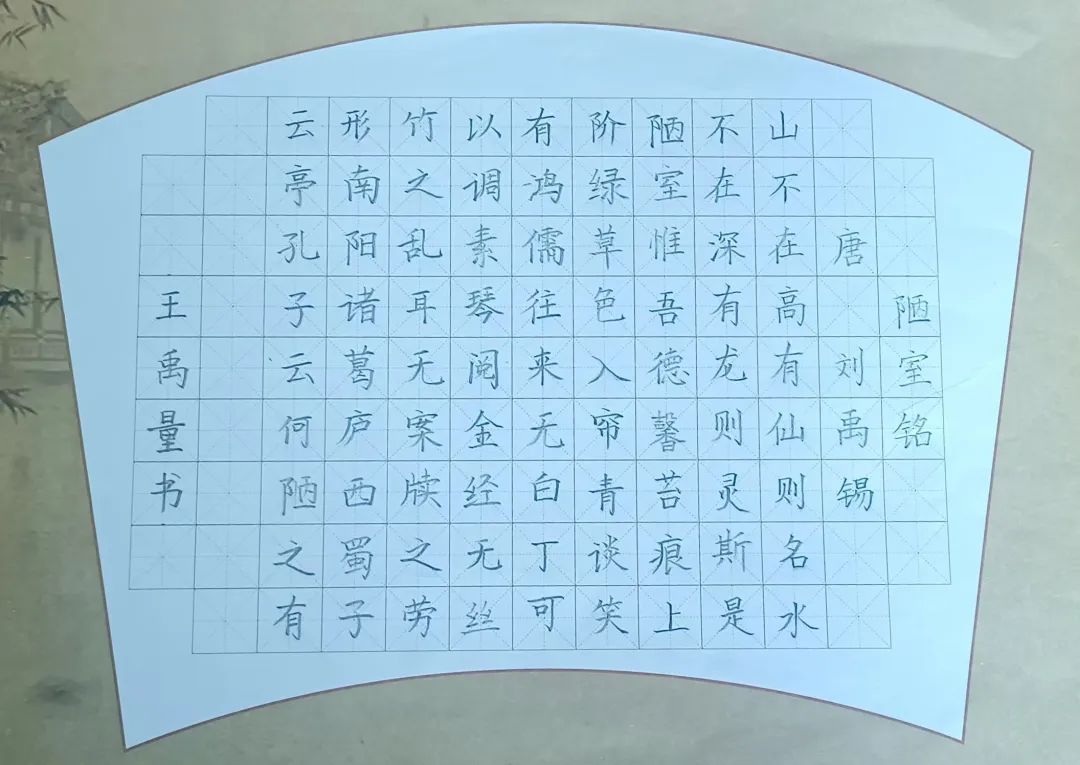 陋室铭
唐刘禹锡
山不在高有仙则名水
不在深有龙则灵斯是
陋室惟吾德馨苔痕上
阶绿草色入帘青谈笑
有鸿儒往来无白丁可
以调素琴阅金经无丝
竹之乱耳无案牍之劳
形南阳诸葛庐西蜀子
云亭孔子云何陋之有
王禹量书